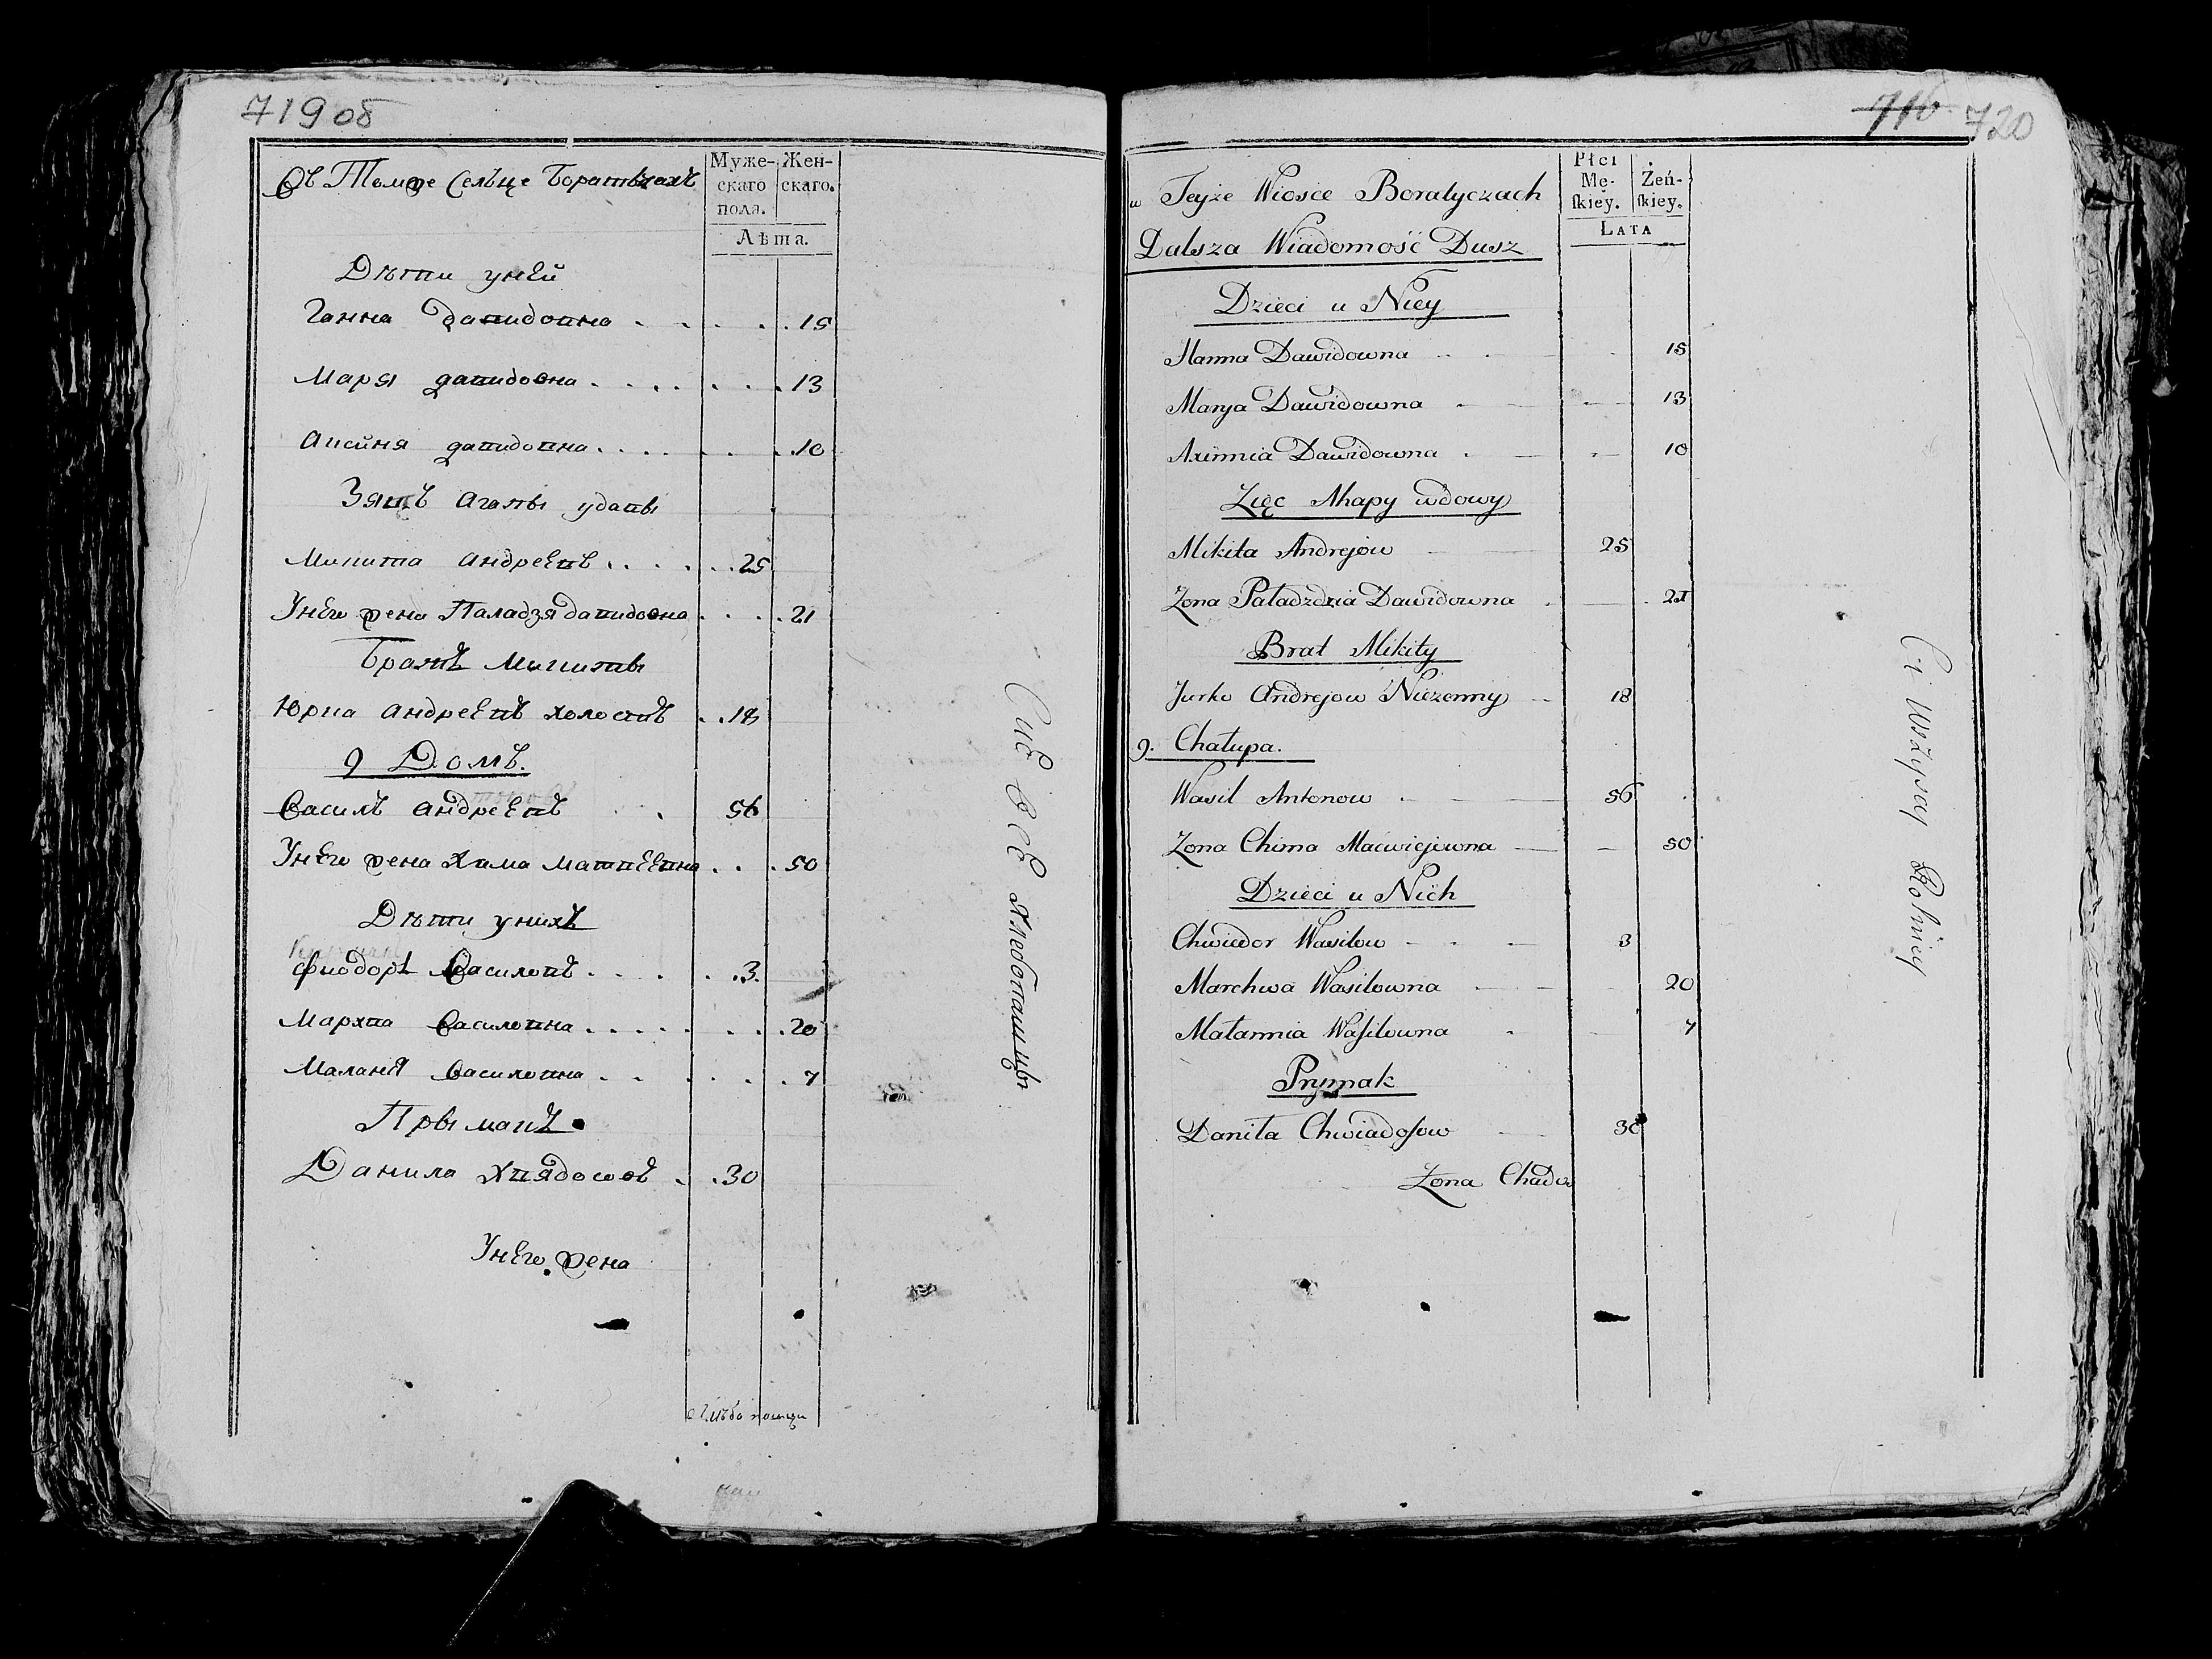 719 об
Въ Томже Сельце Боратычахъ
Муже- Жен-
скаго скаго.
пола.
Лѣта.
Дѣти уней
Ганна давидовна . . . . . 15
Маря давидовна . . . . . . . 13
Аксиня давидовна . . . . . . 10
Зять Агапы удавы
Микита андреевъ . . . . . . 25
Унего жена Паладзя давидовна . . . . 21
Братъ Микиты
Юрка андреевъ холостъ . . 18
9 Домъ.
Василь андреевъ . . 56
Унего жена Хима матвеевна . . . 50
Дѣти унихъ
Фиодоръ Василовъ . . . . . 3.
Мархва Василовна . . . . . . . 20
Маланя Василовна . . . . . . 7
Прымакъ
Данила Хвядосовъ . . 30
Унего жена
Сие все хлебопашцы
хлѣбопашцы
716 720
w Teyże Wiosce Boratyczach
Płci
Mę- Żeń-
ſkiey. ſkiey.
LATA
Dalsza Wiadomość Dusz
Dzieci u Niey
Hanna Dawidowna 15
Marya Dawidowna 13
Axinnia Dawidowna 10
Zięc Ahapy wdowy
Mikita Andrejow 25
Zona Paładzdzia Dawidowna 21
Brat Mikity
Jurko Andrejow Niezenny 18
9. Chałupa.
Wasil Antonow 56
Zona Chima Maciviejewna 50
Dzieci u Nich
Chwiedor Wasilow 3
Marchwa Wasilowna 20
Małannia Waſilowna 7
Prymak
Daniła Chwiadoſow 30
Zona Chadoɾ
Ci Wszyscy Rolnicy